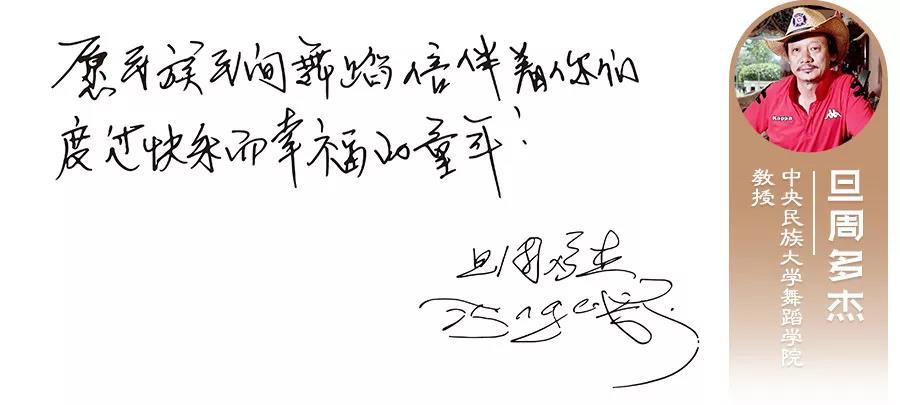 愿民族民间舞蹈倍伴着你们
度过快乐而幸福的童年!
旦周多杰
Kappa
旦周多杰
中央民族大学舞蹈学院
教授